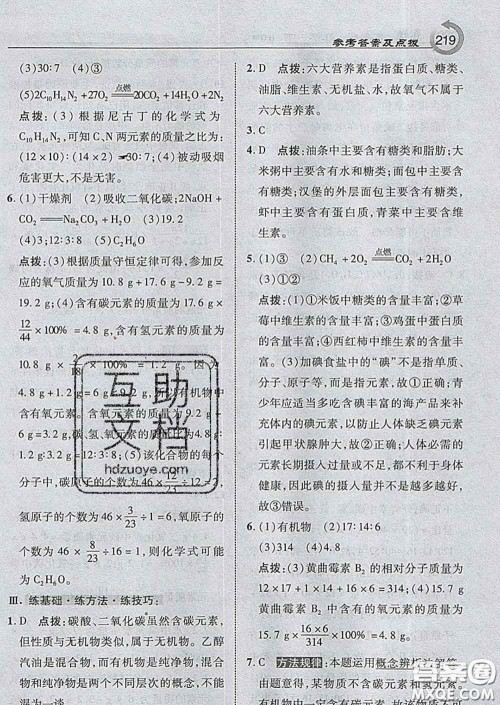 参考答案及点拨 219
(3)30∶7 (4)③
(5)2C₁₀H₁₄N₂+27O₂ 点燃 20CO₂+14H₂O+2N₂
点拨：(3)根据尼古丁的化学式为
C₁₀H₁₄N₂，可知C、N两元素的质量之比为：
(12×10)∶(14×2)=30∶7；(4)被动吸烟
危害更大，不是无害。
6. (1)干燥剂 (2)吸收二氧化碳；2NaOH+
CO₂══Na₂CO₃+H₂O (3)19.2
(4)3；12∶3∶8 (5)C₂H₆O
点拨：(3)根据质量守恒定律可得，参加反
应的氧气质量为10.8 g+17.6 g-9.2 g=
19.2 g；(4)含有碳元素的质量为17.6 g×
12/44×100%=4.8 g，含有氢元素的质量为
10.8 g×2/18×100%=1.2 g。因为
4.8 g+1.2 g=6 g<9.2 g，所以有机物中
含有碳、氢、氧三种元素，氧元素的质量为9.2 g-
6 g=3.2 g，碳、氢、氧元素的质量比为
12∶3∶8；(5)该化合物的每个分
子中，碳原子的个数为46×12/23÷12=2，
氢原子的个数为46×3/23÷1=6，氧原子的
个数为46×8/23÷16=1，则化学式可能
为C₂H₆O。
Ⅲ. 练基础·练方法·练技巧：
1. D 点拨：碳酸、二氧化碳虽然含碳元素，
但性质与无机物类似，属于无机物。乙醇
汽油是混合物，而有机物是纯净物，混合
物和纯净物是两个不同层次的概念，不能
混为一谈。
2. D 点拨：六大营养素是指蛋白质、糖类、
油脂、维生素、无机盐、水，故氧气不属于
六大营养素。
3. C
4. D 点拨：油条中主要含有糖类和脂肪；大
米粥中主要含有水和糖类；面包中主要含
有糖类；汉堡的外层面包主要含有糖类，
虾中主要含有蛋白质，青菜中主要含有维
生素。
5. (1)③ (2)CH₄+2O₂ 点燃 CO₂+2H₂O
(3)①②
点拨：(1)①米饭中糖类的含量丰富；②草
莓中维生素的含量丰富；③鸡蛋中蛋白质
的含量丰富；④西红柿中维生素的含量丰
富。(3)加碘食盐中的“碘”不是指单质、
分子、原子等，而是指元素，①正确；在青
少年应适当多吃含碘丰富的海产品来补
充体内的碘元素，以防止人体缺乏碘元素
引起甲状腺肿大，故②正确；人体必需的
元素长期摄入不足或过量，都不利于身体
健康，因此碘的摄入量并不是越大越好，
故③错误。
6. (1)有机物 (2)17∶14∶6
(3)314 (4)15.7
点拨：(3)黄曲霉素B₁的相对分子质量为
12×17+1×14+16×6=314；(4)所需的
黄曲霉素B₁的质量为4.8 g÷
(16×6/314×100%)=15.7 g。
7. C 方法规律：本题运用概念辨析法解答。
由题意可知，因不含碳元素的
互助文档
hdzuoye.com
答案圈